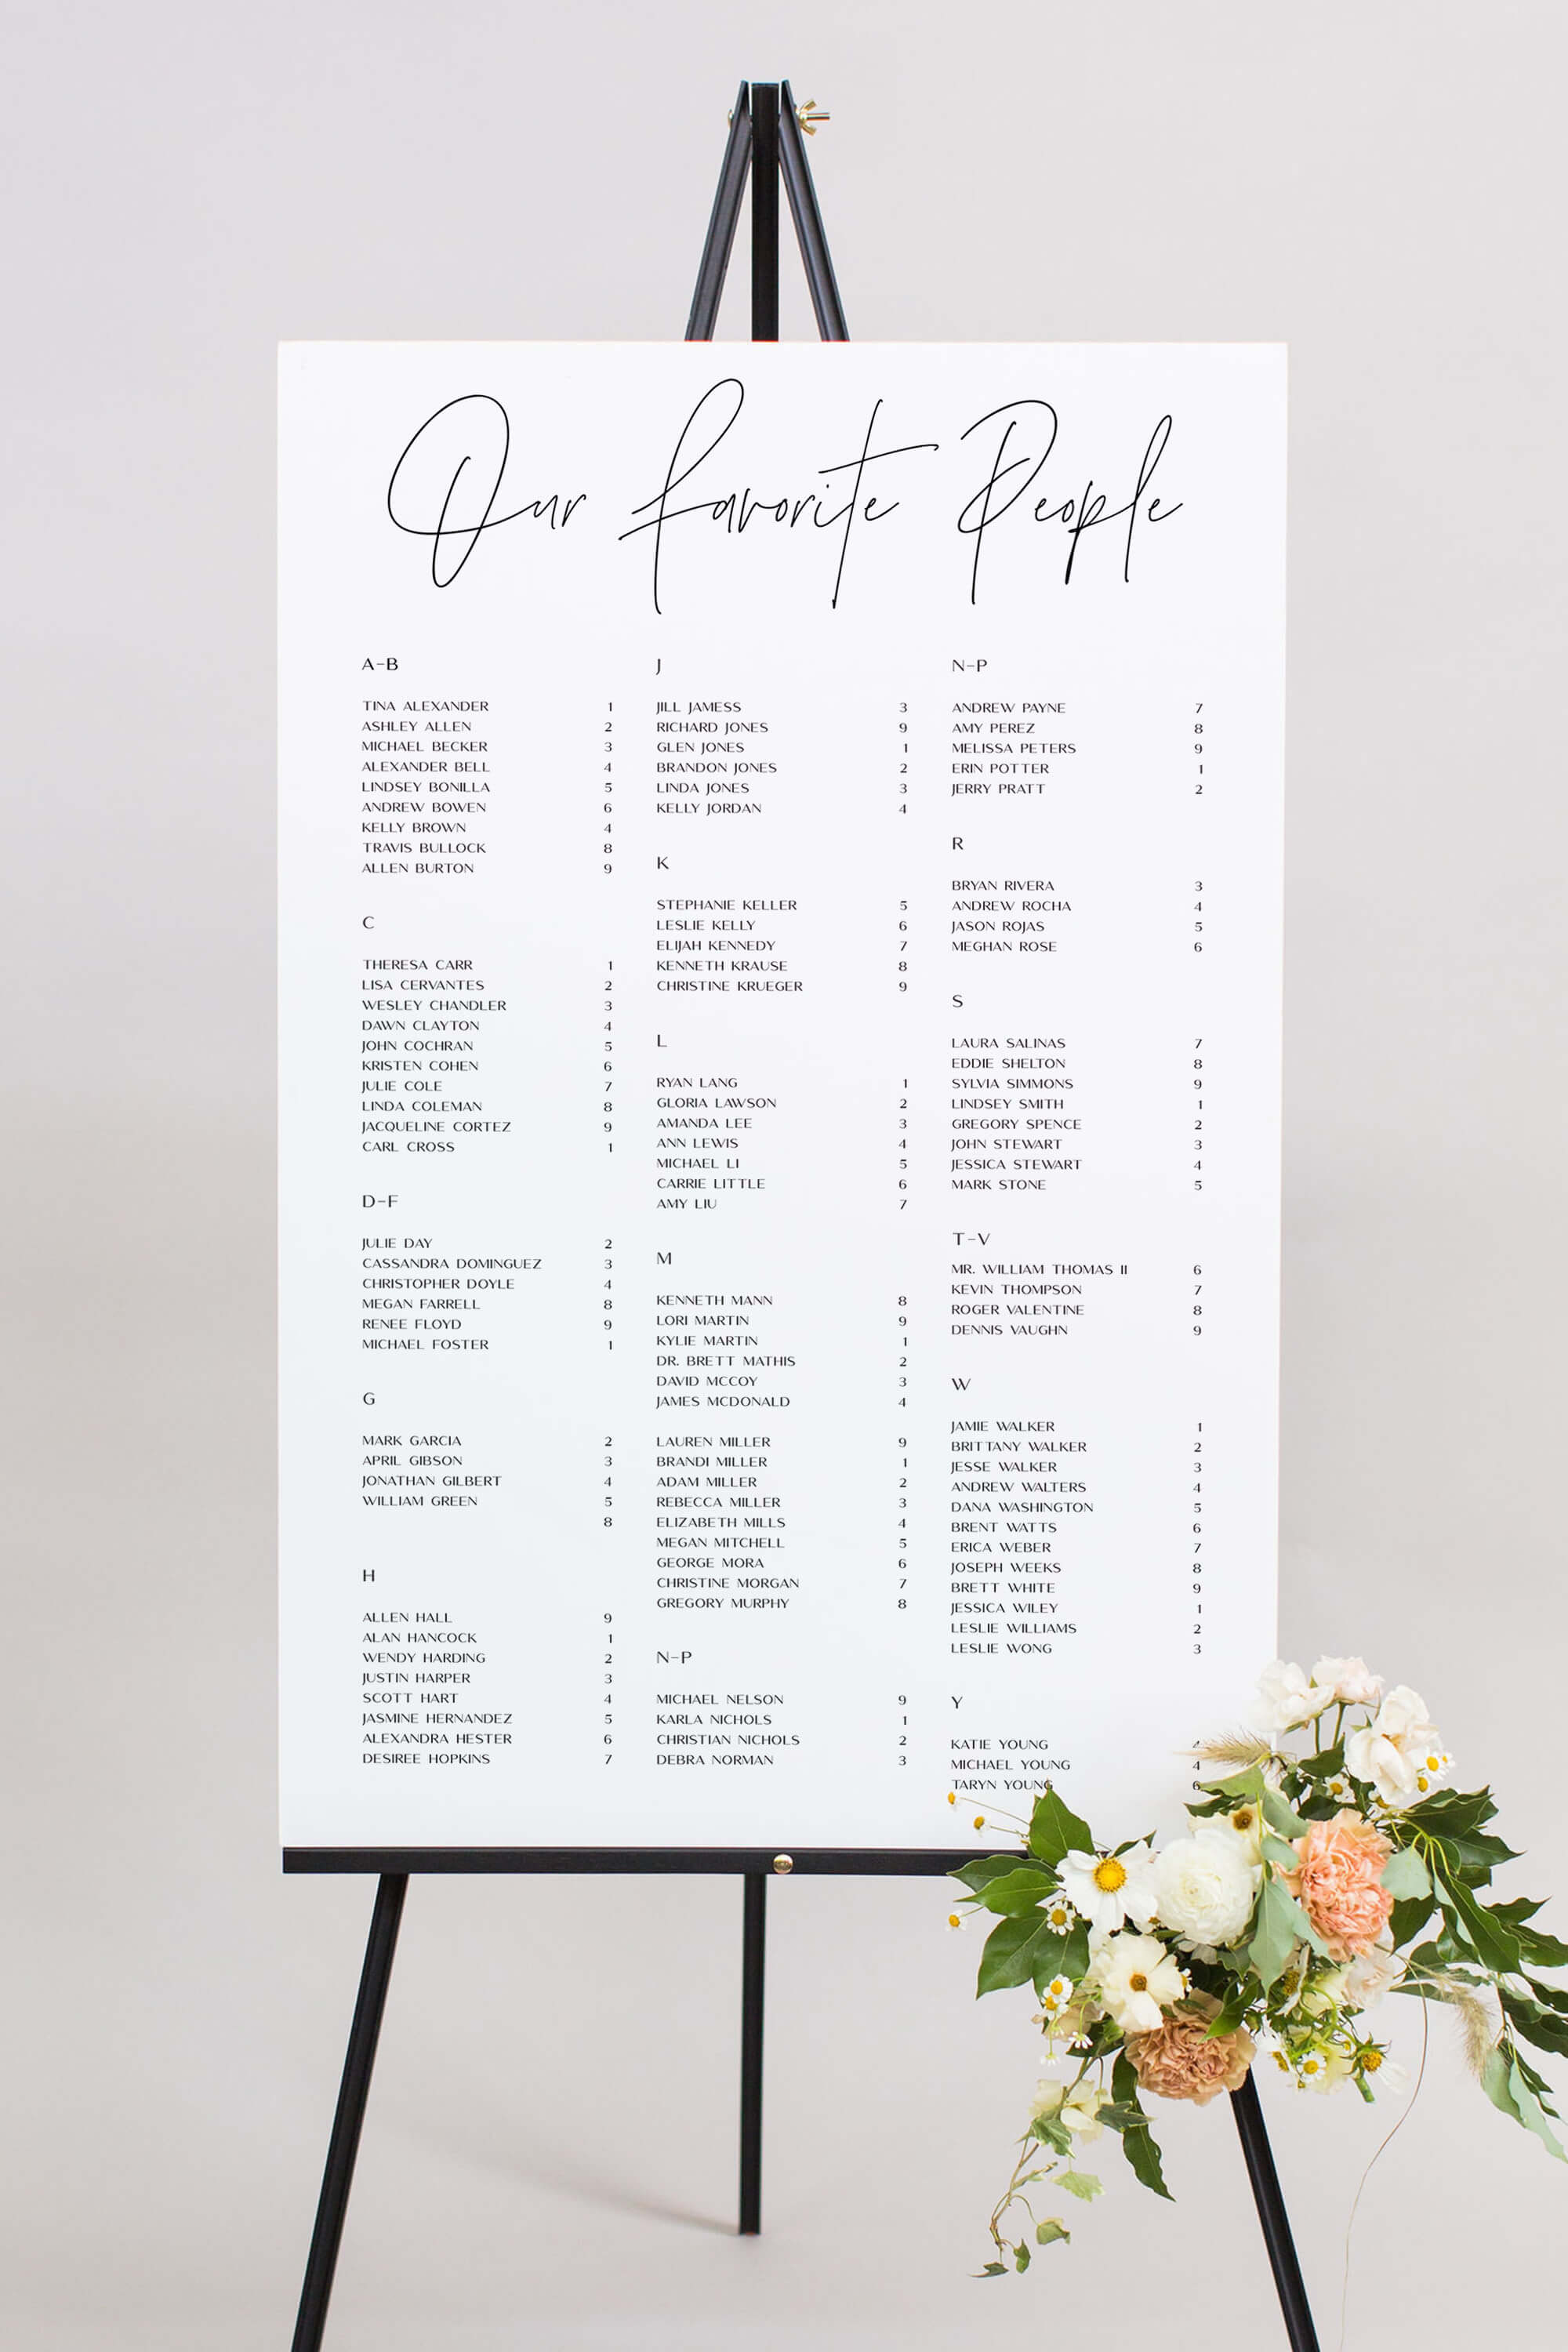 Our Favorite People
A-B
TINA ALEXANDER 1
ASHLEY ALLEN 2
MICHAEL BECKER 3
ALEXANDER BELL 4
LINDSEY BONILLA 5
ANDREW BOWEN 6
KELLY BROWN 4
TRAVIS BULLOCK 8
ALLEN BURTON 9
C
THERESA CARR 1
LISA CERVANTES 2
WESLEY CHANDLER 3
DAWN CLAYTON 4
JOHN COCHRAN 5
KRISTEN COHEN 6
JULIE COLE 7
LINDA COLEMAN 8
JACQUELINE CORTEZ 9
CARL CROSS 1
D-F
JULIE DAY 2
CASSANDRA DOMINGUEZ 3
CHRISTOPHER DOYLE 4
MEGAN FARRELL 8
RENEE FLOYD 9
MICHAEL FOSTER 1
G
MARK GARCIA 2
APRIL GIBSON 3
JONATHAN GILBERT 4
WILLIAM GREEN 5
8
H
ALLEN HALL 9
ALAN HANCOCK 1
WENDY HARDING 2
JUSTIN HARPER 3
SCOTT HART 4
JASMINE HERNANDEZ 5
ALEXANDRA HESTER 6
DESIREE HOPKINS 7
J
JILL JAMESS 3
RICHARD JONES 9
GLEN JONES 1
BRANDON JONES 2
LINDA JONES 3
KELLY JORDAN 4
K
STEPHANIE KELLER 5
LESLIE KELLY 6
ELIJAH KENNEDY 7
KENNETH KRAUSE 8
CHRISTINE KRUEGER 9
L
RYAN LANG 1
GLORIA LAWSON 2
AMANDA LEE 3
ANN LEWIS 4
MICHAEL LI 5
CARRIE LITTLE 6
AMY LIU 7
M
KENNETH MANN 8
LORI MARTIN 9
KYLIE MARTIN 1
DR. BRETT MATHIS 2
DAVID MCCOY 3
JAMES MCDONALD 4
LAUREN MILLER 9
BRANDI MILLER 1
ADAM MILLER 2
REBECCA MILLER 3
ELIZABETH MILLS 4
MEGAN MITCHELL 5
GEORGE MORA 6
CHRISTINE MORGAN 7
GREGORY MURPHY 8
N-P
MICHAEL NELSON 9
KARLA NICHOLS 1
CHRISTIAN NICHOLS 2
DEBRA NORMAN 3
N-P
ANDREW PAYNE 7
AMY PEREZ 8
MELISSA PETERS 9
ERIN POTTER 1
JERRY PRATT 2
R
BRYAN RIVERA 3
ANDREW ROCHA 4
JASON ROJAS 5
MEGHAN ROSE 6
S
LAURA SALINAS 7
EDDIE SHELTON 8
SYLVIA SIMMONS 9
LINDSEY SMITH 1
GREGORY SPENCE 2
JOHN STEWART 3
JESSICA STEWART 4
MARK STONE 5
T-V
MR. WILLIAM THOMAS II 6
KEVIN THOMPSON 7
ROGER VALENTINE 8
DENNIS VAUGHN 9
W
JAMIE WALKER 1
BRITTANY WALKER 2
JESSE WALKER 3
ANDREW WALTERS 4
DANA WASHINGTON 5
BRENT WATTS 6
ERICA WEBER 7
JOSEPH WEEKS 8
BRETT WHITE 9
JESSICA WILEY 1
LESLIE WILLIAMS 2
LESLIE WONG 3
Y
KATIE YOUNG 4
MICHAEL YOUNG 4
TARYN YOUNG 6